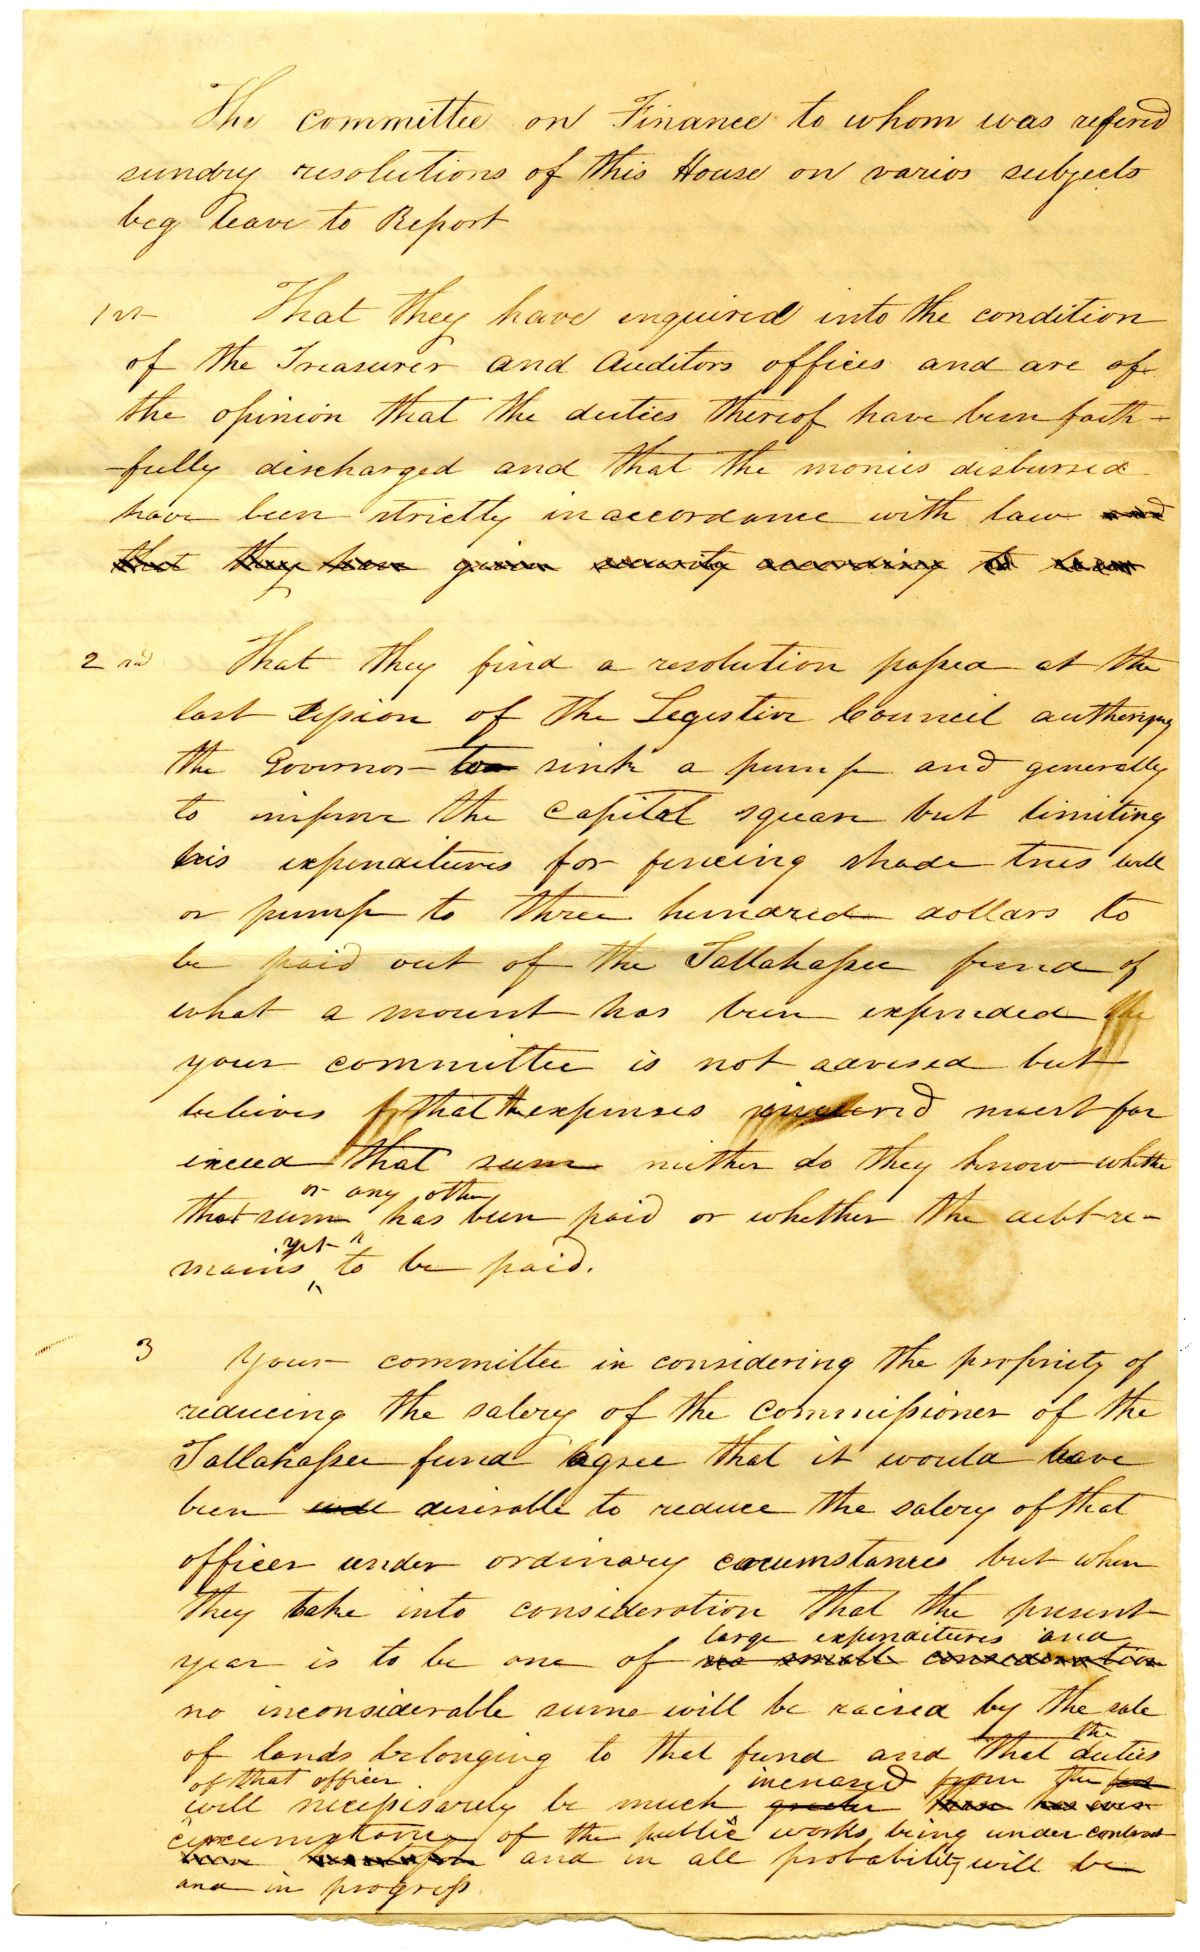 The committee on Finance to whom was refered
sundry resolutions of this House on varios subjects
beg leave to Report
1st That they have enquired into the condition
of the Treasurer and Auditors offices and are of
the opinion that the duties thereof have been faith-
-fully discharged and that the monies disbursed
have been strictly in accordance with law and
that they have given security according to law
2nd That they find a resolution passed at the
last session of the Legistive Council authorising
the Governor to sink a pump and generally
to improve the capital square but limiting
his expenditures for fencing shade trees well
or pump to three hundred dollars to
be paid out of the Tallahassee fund of
what a mount has been expended
your committee is not advised but
believes that the expenses incurred must far
exceed that sum neither do they know whether
or any other
that sum has been paid or whether the debt re-
yet
mains to be paid.
3 Your committee in considering the propriety of
reducing the salery of the commissioner of the
Tallahassee fund agree that it would have
been well desirable to reduce the salery of that
officer under ordinary circumstances but when
they take into consideration that the present
large expenditures and
year is to be one of no small consideration
no inconsiderable sume will be raised by the sale
of lands belonging to that fund and that the duties
of that officer increased from the
will necessarily be much greater than has ever
circumstance of the public works being under contract
been and in all probability will be
and in progress.